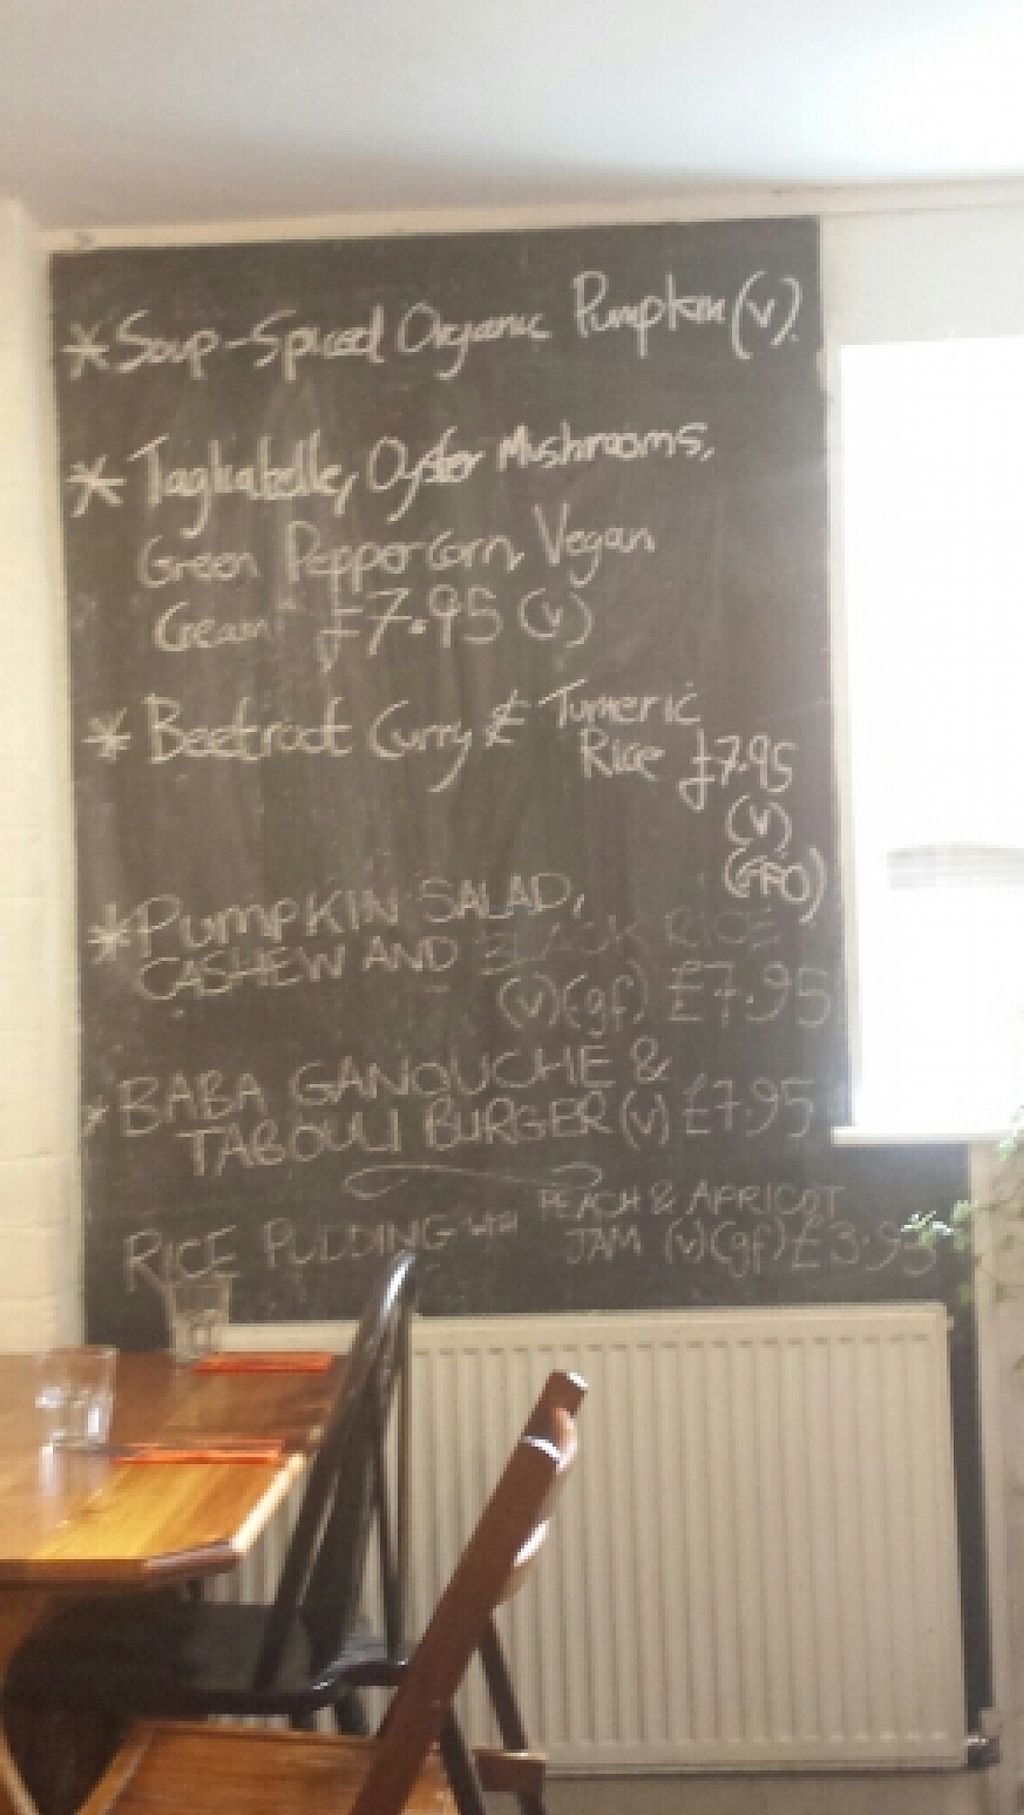 * Soup - Spiced Organic Pumpkin (v).
* Tagliatelle, Oyster Mushrooms,
Green Peppercorn, Vegan
Cream £7.95 (v)
* Beetroot Curry & Tumeric
Rice £7.95
(v)
(GFO)
* PUMPKIN SALAD,
CASHEW AND BLACK RICE
(v) (gf) £7.95
* BABA GANOUCHE &
TABOULI BURGER (v) £7.95
RICE PUDDING with PEACH & APRICOT
JAM (v) (gf) £3.95